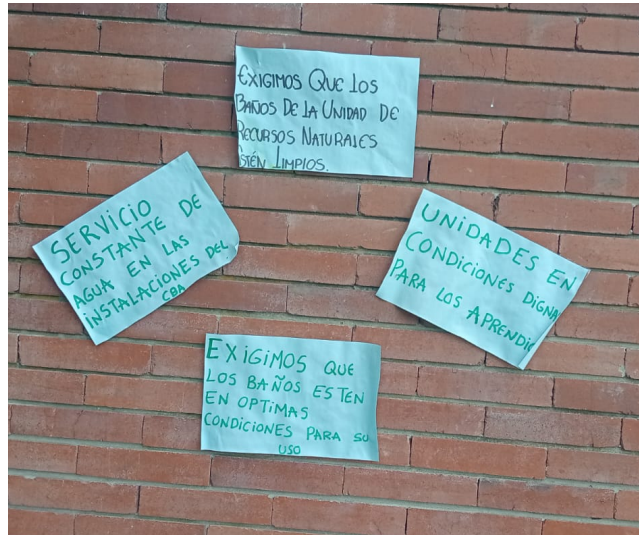 EXIGIMOS QUE LOS
BAÑOS DE LA UNIDAD DE
RECURSOS NATURALES
ESTÉN LIMPIOS.
SERVICIO
CONSTANTE DE
AGUA EN LAS
INSTALACIONES DEL
CBA
UNIDADES EN
CONDICIONES DIGNA
PARA LOS APRENDI
EXIGIMOS QUE
LOS BAÑOS ESTEN
EN OPTIMAS
CONDICIONES PARA SU
USO